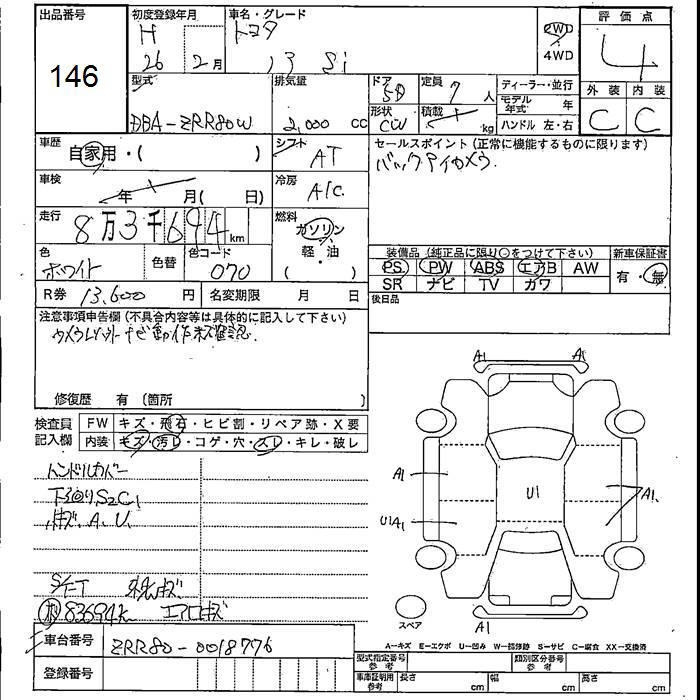 出品番号
146
初度登録年月
H
26 2月
車名・グレード
トヨタ
Si
2WD
4WD
評価点
4
外装 内装
C C
型式
DBA-ZRR80W
排気量
2,000 cc
ドア
5D
形状
CW
定員 7 人
積載 kg
ディーラー・並行
モデル年式 年
ハンドル 左・右
車歴
自家用・( )
シフト
AT
車検
年 月( 日)
冷房
A/C
走行
8万3千694km
燃料
ガソリン
軽・油
( )
色
ホワイト
色替
色コード
070
R券 13,600円
名変期限 月 日
セールスポイント(正常に機能するものに限ります)
バックアイカメラ
装備品(純正品に限り○をつけて下さい)
PS PW ABS エアB AW
SR ナビ TV カワ
新車保証書
有・無
後日品
注意事項申告欄(不具合内容等は具体的に記入して下さい)
修復歴 有(箇所 )
検査員
記入欄
FW キズ・飛石・ヒビ割・リペア跡・X要
内装 キズ・汚レ・コゲ・穴・スレ・キレ・破レ
ハンドルカバー
下回りS2C1
キズ.A.U.
83694K エアロキズ
車台番号 ZRR80-0018776
登録番号
A1 A1
A1
U1
A1.
U1A1
スペア
A1
A-キズ E-エクボ U-凹み W-補修跡 S-サビ C-腐食 XX-交換済
型式指定番号
参考
類別区分番号
参考
車庫証明用
参考
長さ cm 幅 cm 高さ cm